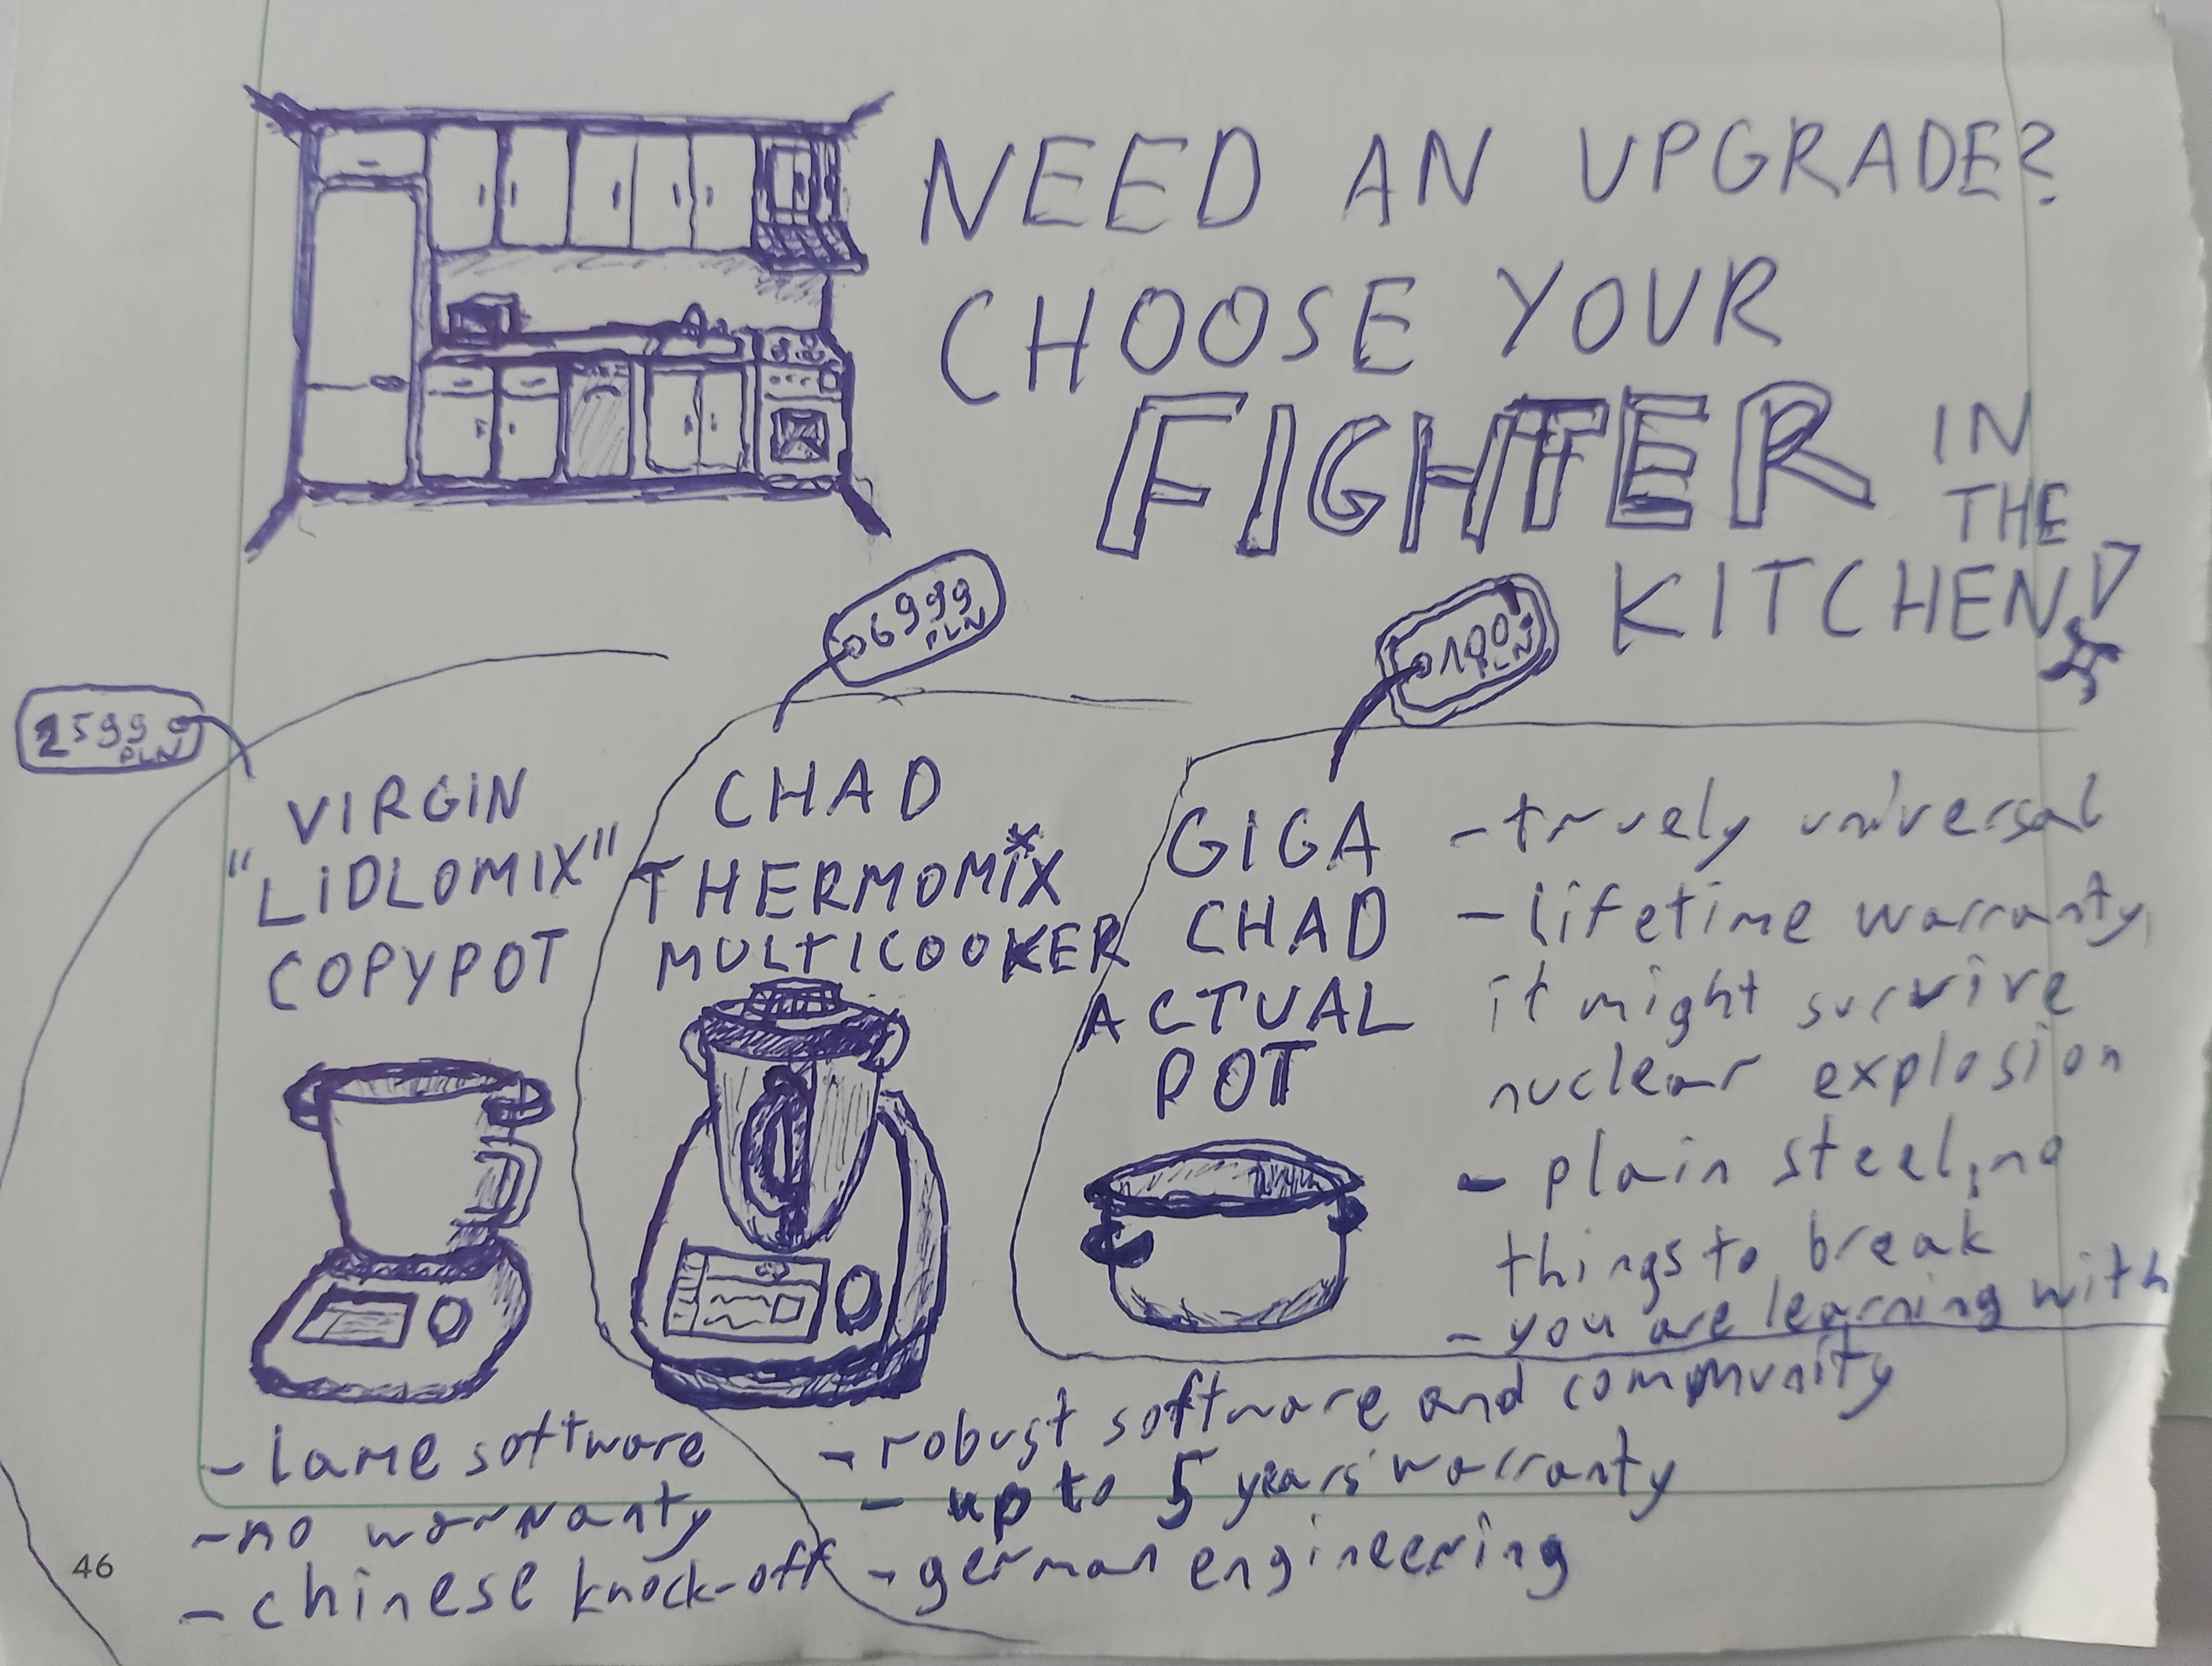 NEED AN UPGRADE?
CHOOSE YOUR
FIGHTER IN
THE
KITCHEN!
2599
PLN
VIRGIN
"LIDLOMIX"
COPYPOT
- lame software
- no warranty
- chinese knock-off
6999
PLN
CHAD
THERMOMIX*
MULTICOOKER
- robust software and community
- up to 5 years warranty
- german engineering
PLN
GIGA
CHAD
ACTUAL
POT
- truely universal
- lifetime warranty,
it might survive
nuclear explosion
- plain steel, no
things to break
- you are learning with
46